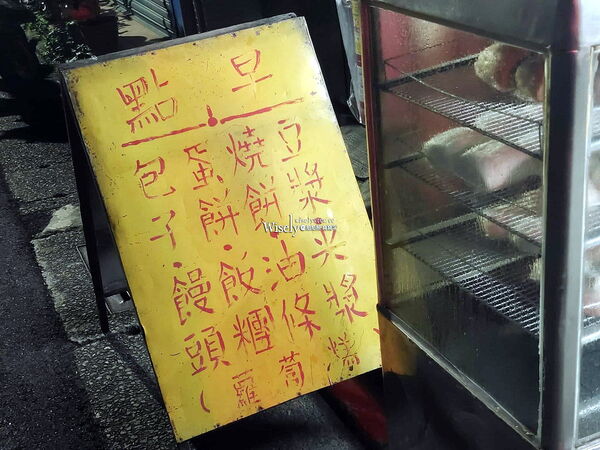 早點
豆漿·米漿
燒餅·油條
蛋餅·飯糰
包子·饅頭
(蘿蔔糕
Wisely